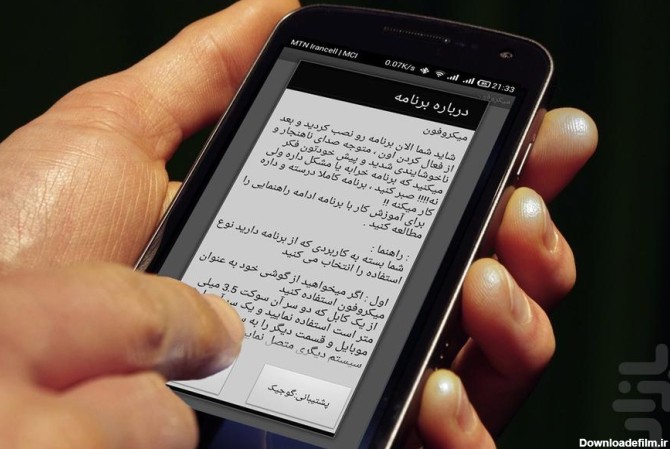 MTN Irancell | MCI 0.07K/s 21:33
میکروفون
درباره برنامه
میکروفون
شاید شما الان برنامه رو نصب کردید و بعد
از فعال کردن اون ، متوجه صدای ناهنجار و
ناخوشایندی شدید و پیش خودتون فکر
میکنید که برنامه خرابه یا مشکل داره ولی
نه!!!! صبر کنید ، برنامه کاملا درسته و داره
کار میکنه !!
برای آموزش کار با برنامه ادامه راهنمایی را
مطالعه کنید .
راهنما :
شما بسته به کاربردی که از برنامه دارید نوع
استفاده را انتخاب می کنید
اول : اگر میخواهید از گوشی خود به عنوان
میکروفون استفاده کنید
از یک کابل که دو سر آن سوکت 3.5 میلی
متر است استفاده نمایید و یک سر
موبایل و قسمت دیگر را به
سیستم دیگری متصل
پشتیبانی:گوجیک
بازار
Downloadefilm.ir